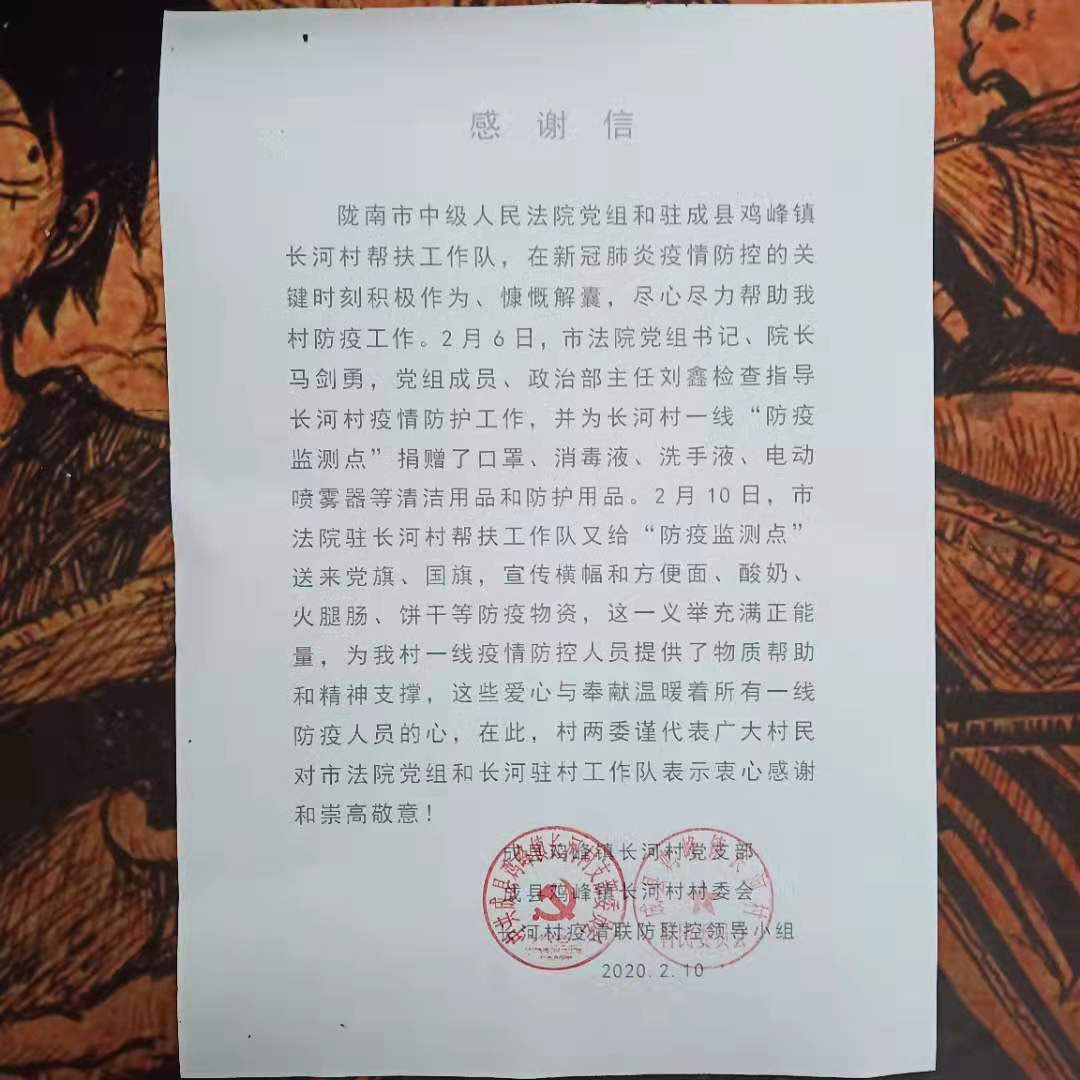 感谢信
陇南市中级人民法院党组和驻成县鸡峰镇
长河村帮扶工作队，在新冠肺炎疫情防控的关
键时刻积极作为、慷慨解囊，尽心尽力帮助我
村防疫工作。2月6日，市法院党组书记、院长
马剑勇，党组成员、政治部主任刘鑫检查指导
长河村疫情防护工作，并为长河村一线“防疫
监测点”捐赠了口罩、消毒液、洗手液、电动
喷雾器等清洁用品和防护用品。2月10日，市
法院驻长河村帮扶工作队又给“防疫监测点”
送来党旗、国旗，宣传横幅和方便面、酸奶、
火腿肠、饼干等防疫物资，这一义举充满正能
量，为我村一线疫情防控人员提供了物质帮助
和精神支撑，这些爱心与奉献温暖着所有一线
防疫人员的心，在此，村两委谨代表广大村民
对市法院党组和长河驻村工作队表示衷心感谢
和崇高敬意！
成县鸡峰镇长河村党支部
成县鸡峰镇长河村村委会
长河村疫情联防联控领导小组
2020.2.10
中共成县鸡峰镇长河村支部委员会
成县鸡峰镇长河村
村民委员会